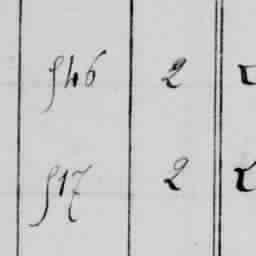 546 2
517 2